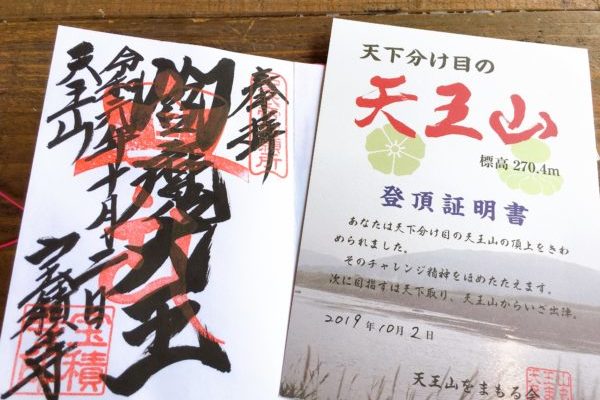 奉拝
閻魔大王
令和元年十月十二日
天王山
宝積寺
宝積
天下分け目の
天王山
標高 270.4m
登頂証明書
あなたは天下分け目の天王山の頂上をきわ
められました。
そのチャレンジ精神をほめたたえます。
次に目指すは天下取り、天王山からいざ出津。
2019年10月2日
天王山をまもる会